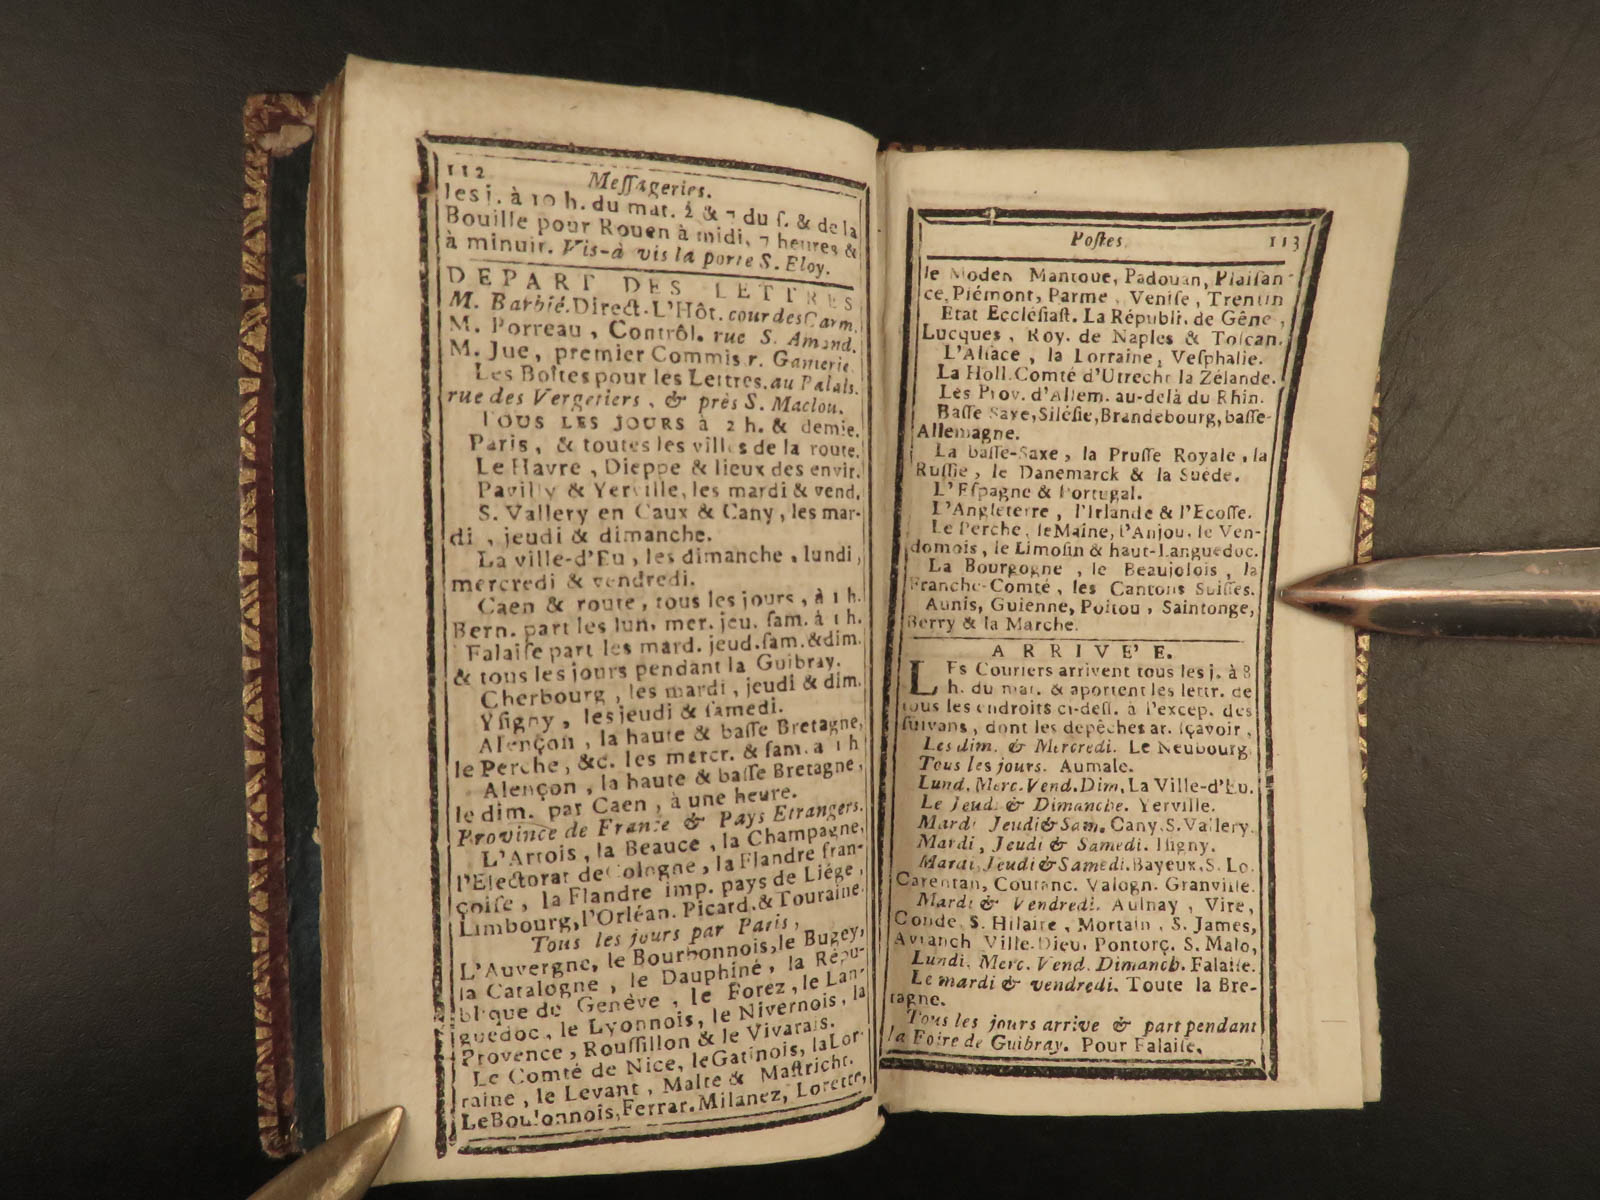 112 Meſſageries.
les j. à 10 h. du mat. & 7 du ſ. & de la
Bouille pour Rouen à midi, 7 heures &
à minuit. Vis-à vis la porte S. Eloy.
DEPART DES LETTRES
M. Barbié. Direct. L'Hôt. cour des Carm.
M. Porreau, Contrôl. rue S. Amand.
M. Jue, premier Commis r. Ganterie
Les Boîtes pour les Lettres. au Palais.
rue des Vergetiers, & près S. Maclou.
TOUS LES JOURS à 2 h. & demie.
Paris, & toutes les villes de la route.
Le Havre, Dieppe & lieux des envir.
Pavilly & Yerville, les mardi & vend.
S. Vallery en Caux & Cany, les mar-
di, jeudi & dimanche.
La ville-d'Eu, les dimanche, lundi,
mercredi & vendredi.
Caen & route, tous les jours, à 1 h.
Bern. part les lun. mer. jeu. ſam. à 1 h.
Falaiſe part les mard. jeud. ſam. & dim.
& tous les jours pendant la Guibray.
Cherbourg, les mardi, jeudi & dim.
Yſigny, les jeudi & ſamedi.
Alençon, la haute & baſſe Bretagne,
le Perche, &c. les mercr. & ſam. a 1 h
Alençon, la haute & baſſe Bretagne,
le dim. par Caen, à une heure.
Province de France & Pays Etrangers.
L'Artois, la Beauce, la Champagne,
l'Electorat de Cologne, la Flandre fran-
çoiſe, la Flandre imp. pays de Liége,
Limbourg, l'Orléan. Picard. & Touraine.
Tous les jours par Paris,
L'Auvergne, le Bourbonnois, le Bugey,
la Catalogne, le Dauphiné, la Répu-
blique de Genéve, le Forez, le Lan-
guedoc, le Lyonnois, le Nivernois, la
Provence, Rouſſillon & le Vivarais.
Le Comté de Nice, le Gatinois, la Lor-
raine, le Levant, Malte & Maſtricht.
Le Boulonnois, Ferrar. Milanez, Lorette,
Poſtes. 113
le Moden Mantoue, Padouan, Plaiſan-
ce, Piémont, Parme, Veniſe, Trentin
Etat Eccléſiaſt. La Républi. de Gêne,
Lucques, Roy. de Naples & Toſcan.
L'Alſace, la Lorraine, Veſphalie.
La Holl. Comté d'Utrecht la Zélande.
Les Prov. d'Allem. au-delà du Rhin.
Baſſe Saxe, Siléſie, Brandebourg, baſſe-
Allemagne.
La baſſe-Saxe, la Pruſſe Royale, la
Ruſſie, le Danemarck & la Suéde.
L'Eſpagne & Portugal.
L'Angleterre, l'Irlande & l'Ecoſſe.
Le Perche, le Maine, l'Anjou, le Ven-
domois, le Limoſin & haut-Languedoc.
La Bourgogne, le Beaujolois, la
Franche-Comté, les Cantons Suiſſes.
Aunis, Guienne, Poitou, Saintonge,
Berry & la Marche.
ARRIVE'E.
LEs Couriers arrivent tous les j. à 8
h. du mat. & aportent les lettr. de
tous les endroits ci-deſſ. à l'excep. des
ſuivans, dont les depêches ar. ſçavoir,
Les dim. & Mercredi. Le Neubourg
Tous les jours. Aumale.
Lund. Merc. Vend. Dim, La Ville-d'Eu.
Le Jeud. & Dimanche. Yerville.
Mardi Jeudi & Sam. Cany, S. Vallery.
Mardi, Jeudi & Samedi. Iſigny.
Mardi, Jeudi & Samedi. Bayeux, S. Lo
Carentan, Coutanc. Valogn. Granville.
Mardi & Vendredi. Aulnay, Vire,
Conde, S. Hilaire, Mortain, S. James,
Avranch Ville-Dieu, Pontorç. S. Malo,
Lundi, Merc. Vend. Dimanch. Falaiſe.
Le mardi & vendredi. Toute la Bre-
tagne.
Tous les jours arrive & part pendant
la Foire de Guibray. Pour Falaiſe,